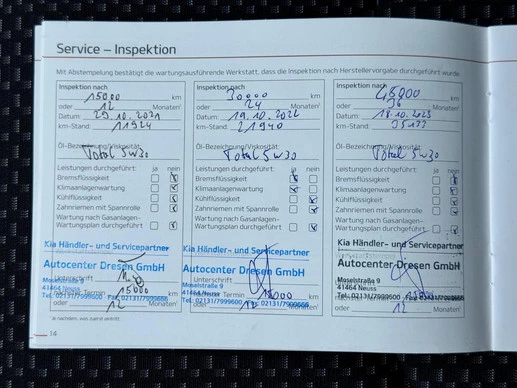 Service – Inspektion
Mit Abstempelung bestätigt die wartungsausführende Werkstatt, dass die Inspektion nach Herstellervorgabe durchgeführt wurde
Inspektion nach
15000 km
oder 12 Monaten
Datum: 29.10.2021
km-Stand: 11924
Öl-Bezeichnung/Viskosität:
Total 5w30
Leistungen durchgeführt: ja nein
Bremsflüssigkeit
Klimaanlagenwartung
Kühlflüssigkeit
Zahnriemen mit Spannrolle
Wartung nach Gasanlagen-
Wartungsplan durchgeführt
Kia Händler- und Servicepartner
Autocenter Dresen GmbH
Unterschrift
Moselstraße 9
41464 Neuss
Termin 15000
Tel.: 02131/7999600 Fax: 02131/7999616
oder 12 Monaten
Inspektion nach
30000 km
oder 24 Monaten
Datum: 19.10.2022
km-Stand: 21940
Öl-Bezeichnung/Viskosität:
Total 5w30
Leistungen durchgeführt: ja nein
Bremsflüssigkeit
Klimaanlagenwartung
Kühlflüssigkeit
Zahnriemen mit Spannrolle
Wartung nach Gasanlagen-
Wartungsplan durchgeführt
Kia Händler- und Servicepartner
Autocenter Dresen GmbH
Moselstraße 9
41464 Neuss
Termin 15000
Tel.: 02131/7999600 Fax: 02131/7999616
oder 12 Monaten
Inspektion nach
45000 km
oder 36 Monaten
Datum: 18.10.2023
km-Stand: 35177
Öl-Bezeichnung/Viskosität:
Total 5w30
Leistungen durchgeführt: ja nein
Bremsflüssigkeit
Klimaanlagenwartung
Kühlflüssigkeit
Zahnriemen mit Spannrolle
Wartung nach Gasanlagen-
Wartungsplan durchgeführt
Kia Händler- und Servicepartner
Autocenter Dresen GmbH
Moselstraße 9
41464 Neuss
15000
Tel.: 02131/7999600 Fax: 02131/7999616
oder 12 Monaten
14